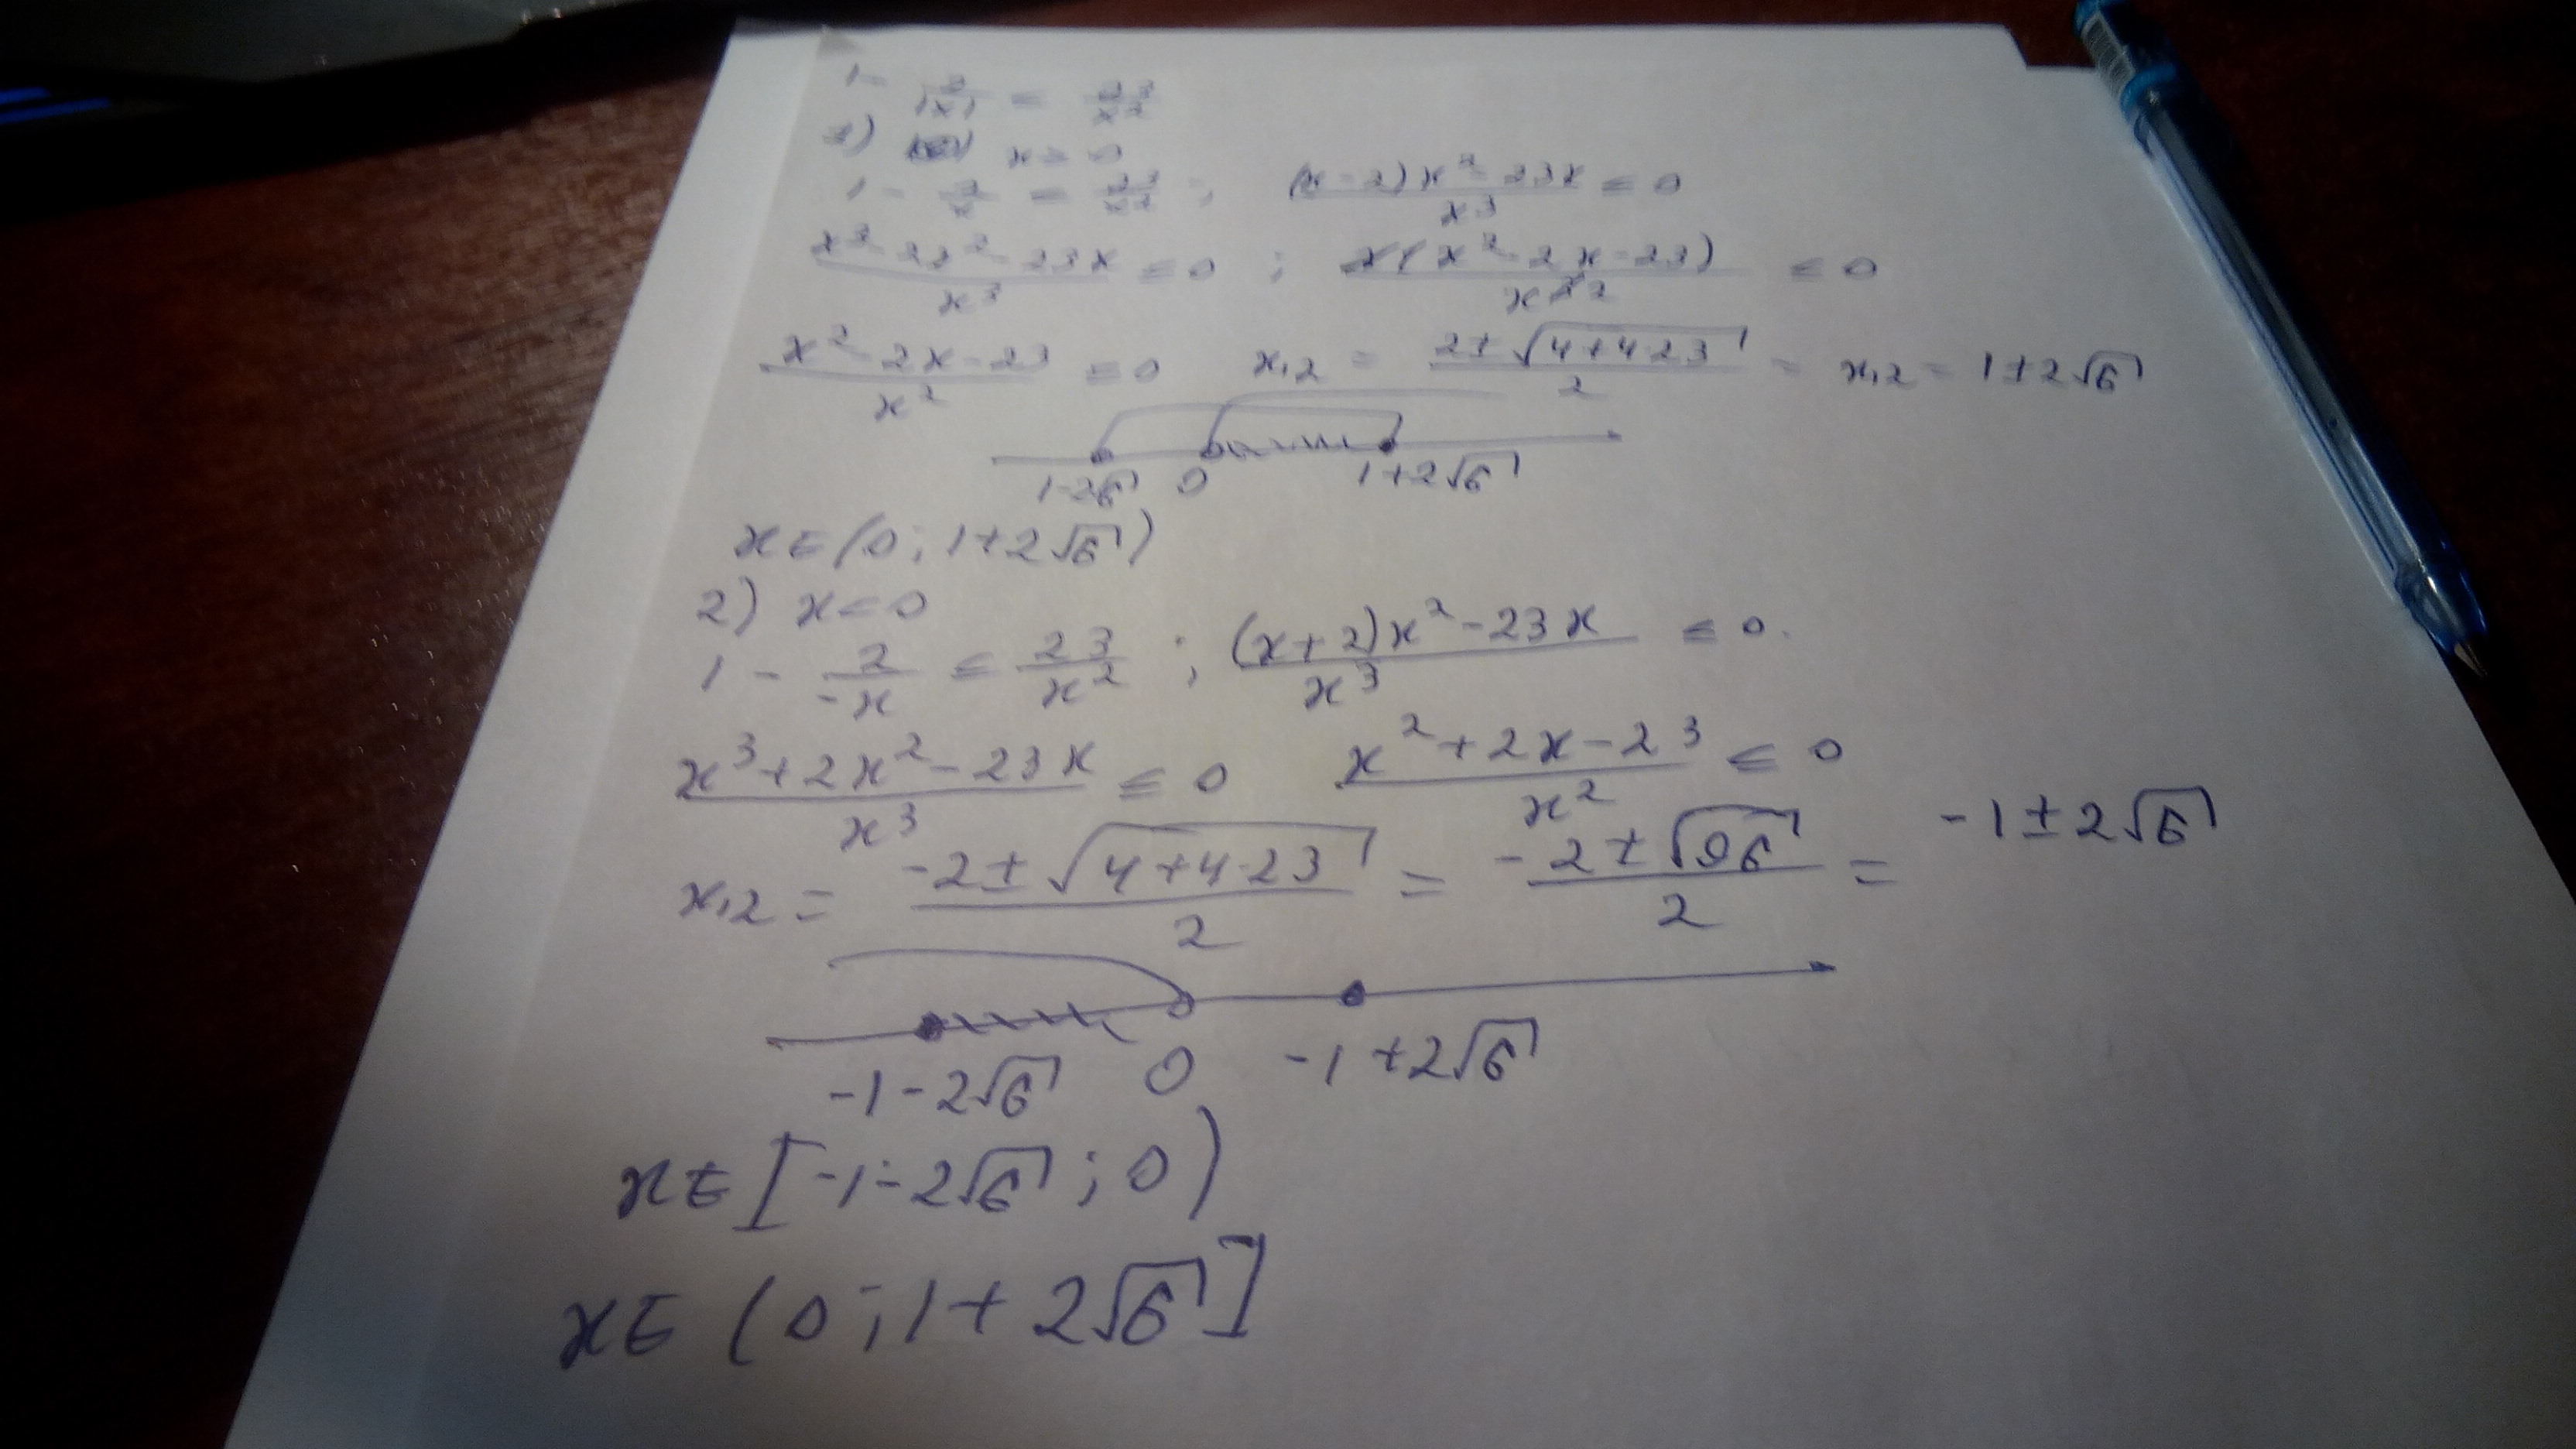 1 - 2/|x| ≤ 23/x²
1) x > 0
1 - 2/x ≤ 23/x² ; ((x-2)x² - 23x)/x³ ≤ 0
(x³ - 2x² - 23x)/x³ ≤ 0 ; x(x² - 2x - 23)/x² ≤ 0
(x² - 2x - 23)/x² ≤ 0 x₁,₂ = (2 ± √(4+4·23))/2 = x₁,₂ = 1 ± 2√6
1-2√6 0 1+2√6
x ∈ (0; 1+2√6)
2) x < 0
1 - 2/-x ≤ 23/x² ; ((x+2)x² - 23x)/x³ ≤ 0.
(x³ + 2x² - 23x)/x³ ≤ 0 (x² + 2x - 23)/x² ≤ 0
x₁,₂ = (-2 ± √(4+4·23))/2 = (-2 ± √96)/2 = -1 ± 2√6
-1-2√6 0 -1+2√6
x ∈ [-1-2√6; 0)
x ∈ (0; 1+2√6]